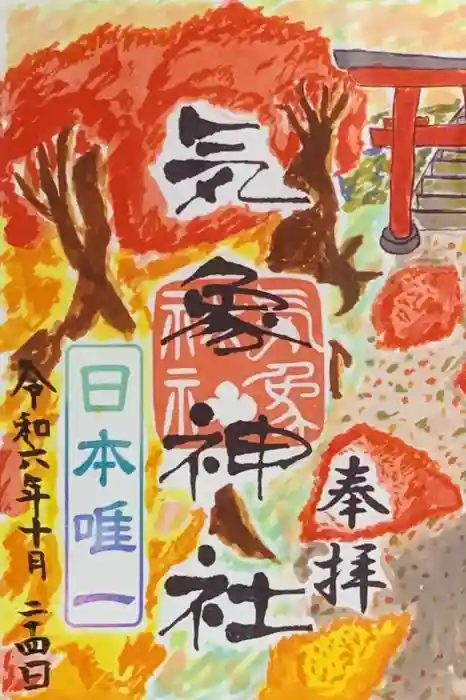 奉拝
気象神社
気象
神社
日本唯一
令和六年十月二十四日